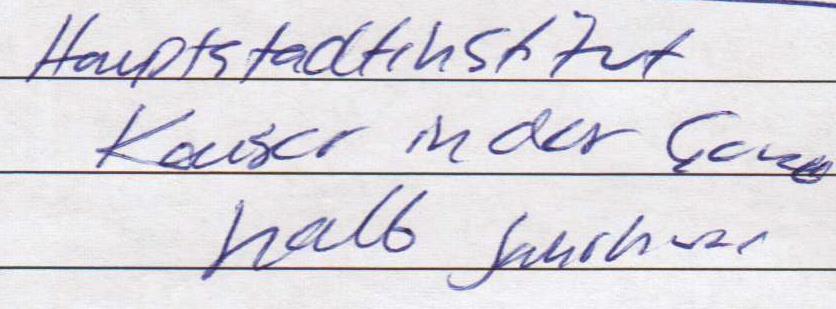 Hauptstadtinstitut
Kaiser in der
halb